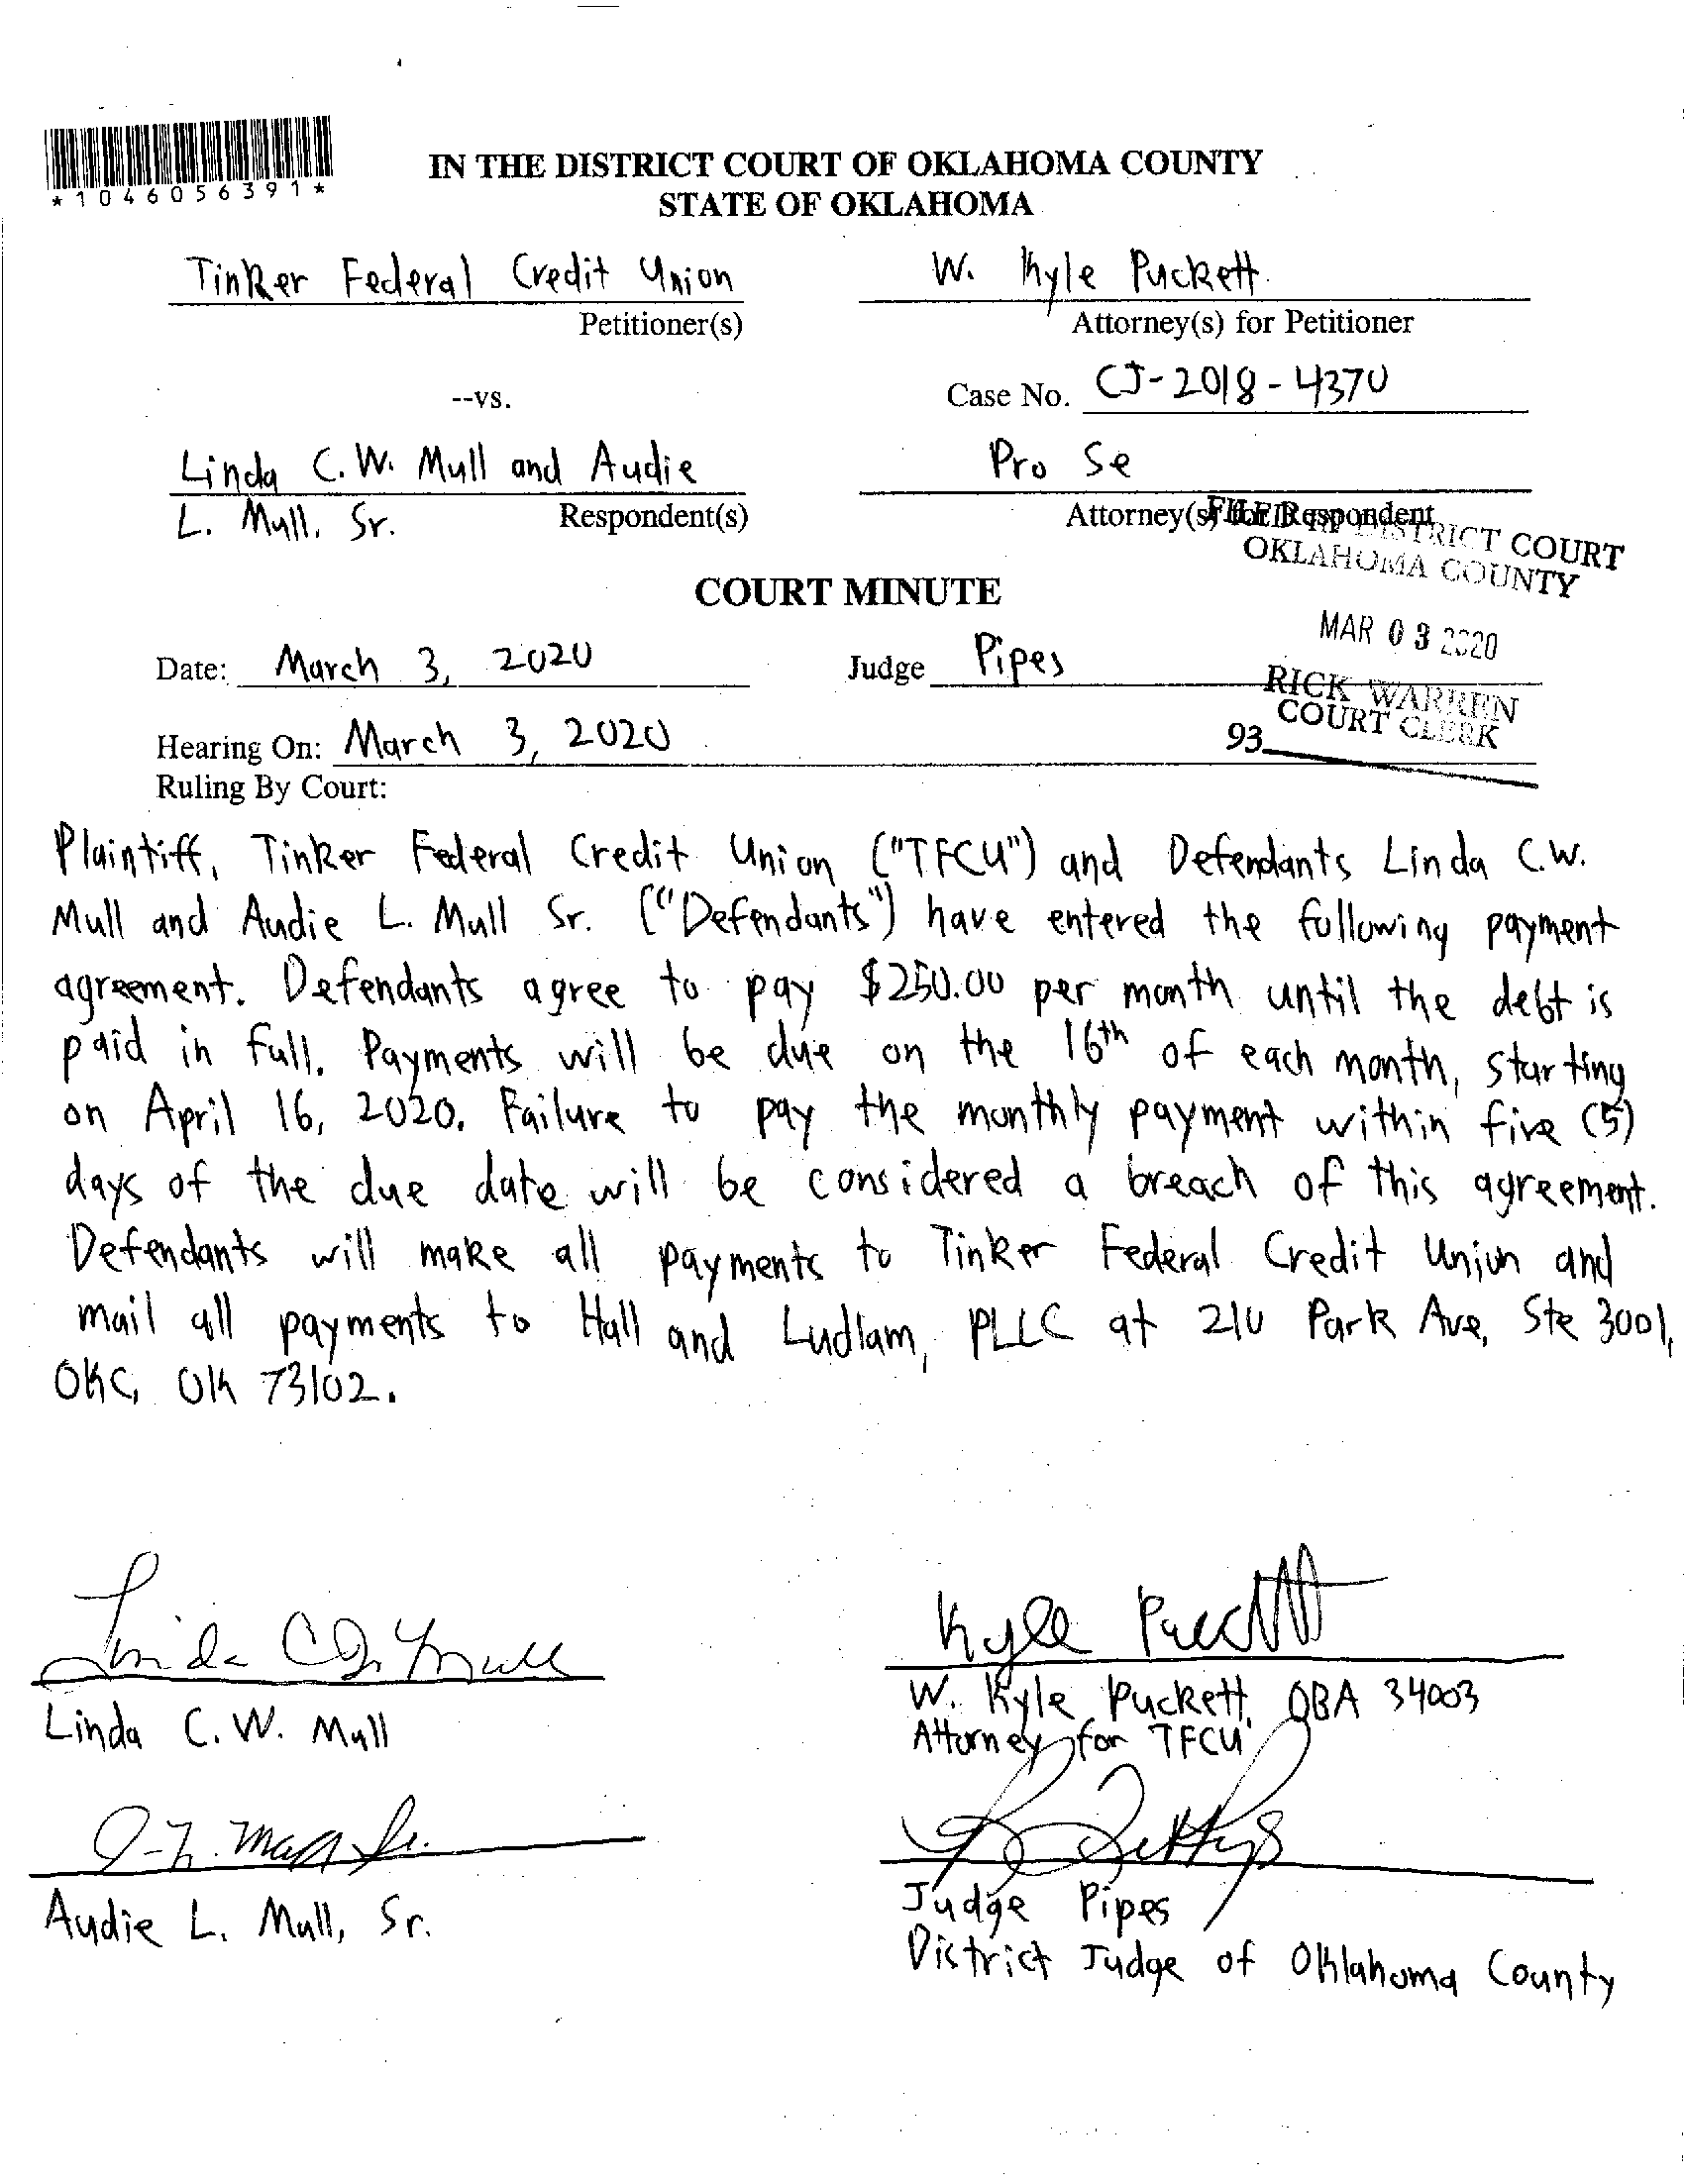 *1046056391*
IN THE DISTRICT COURT OF OKLAHOMA COUNTY
STATE OF OKLAHOMA
Tinker Federal Credit Union
Petitioner(s)
W. Kyle Puckett
Attorney(s) for Petitioner
--vs.
Case No. CJ-2018-4370
Linda C.W. Mull and Audie
L. Mull, Sr.
Respondent(s)
Pro Se
Attorney(s) for Respondent
FILED IN DISTRICT COURT
OKLAHOMA COUNTY
COURT MINUTE
MAR 03 2020
Date: March 3, 2020
Judge Pipes
RICK WARREN
COURT CLERK
93
Hearing On: March 3, 2020
Ruling By Court:
Plaintiff, Tinker Federal Credit Union ("TFCU") and Defendants Linda C.W.
Mull and Audie L. Mull Sr. ("Defendants") have entered the following payment
agreement. Defendants agree to pay $250.00 per month until the debt is
paid in full. Payments will be due on the 16th of each month, starting
on April 16, 2020. Failure to pay the monthly payment within five (5)
days of the due date will be considered a breach of this agreement.
Defendants will make all payments to Tinker Federal Credit Union and
mail all payments to Hall and Ludlam, PLLC at 210 Park Ave, Ste 3001,
OKC, OK 73102.
Linda C.W. Mull
Linda C.W. Mull
Kyle Puckett
W. Kyle Puckett, OBA 34003
Attorney for TFCU
A-L. Mull Sr.
Audie L. Mull, Sr.
Judge Pipes
District Judge of Oklahoma County